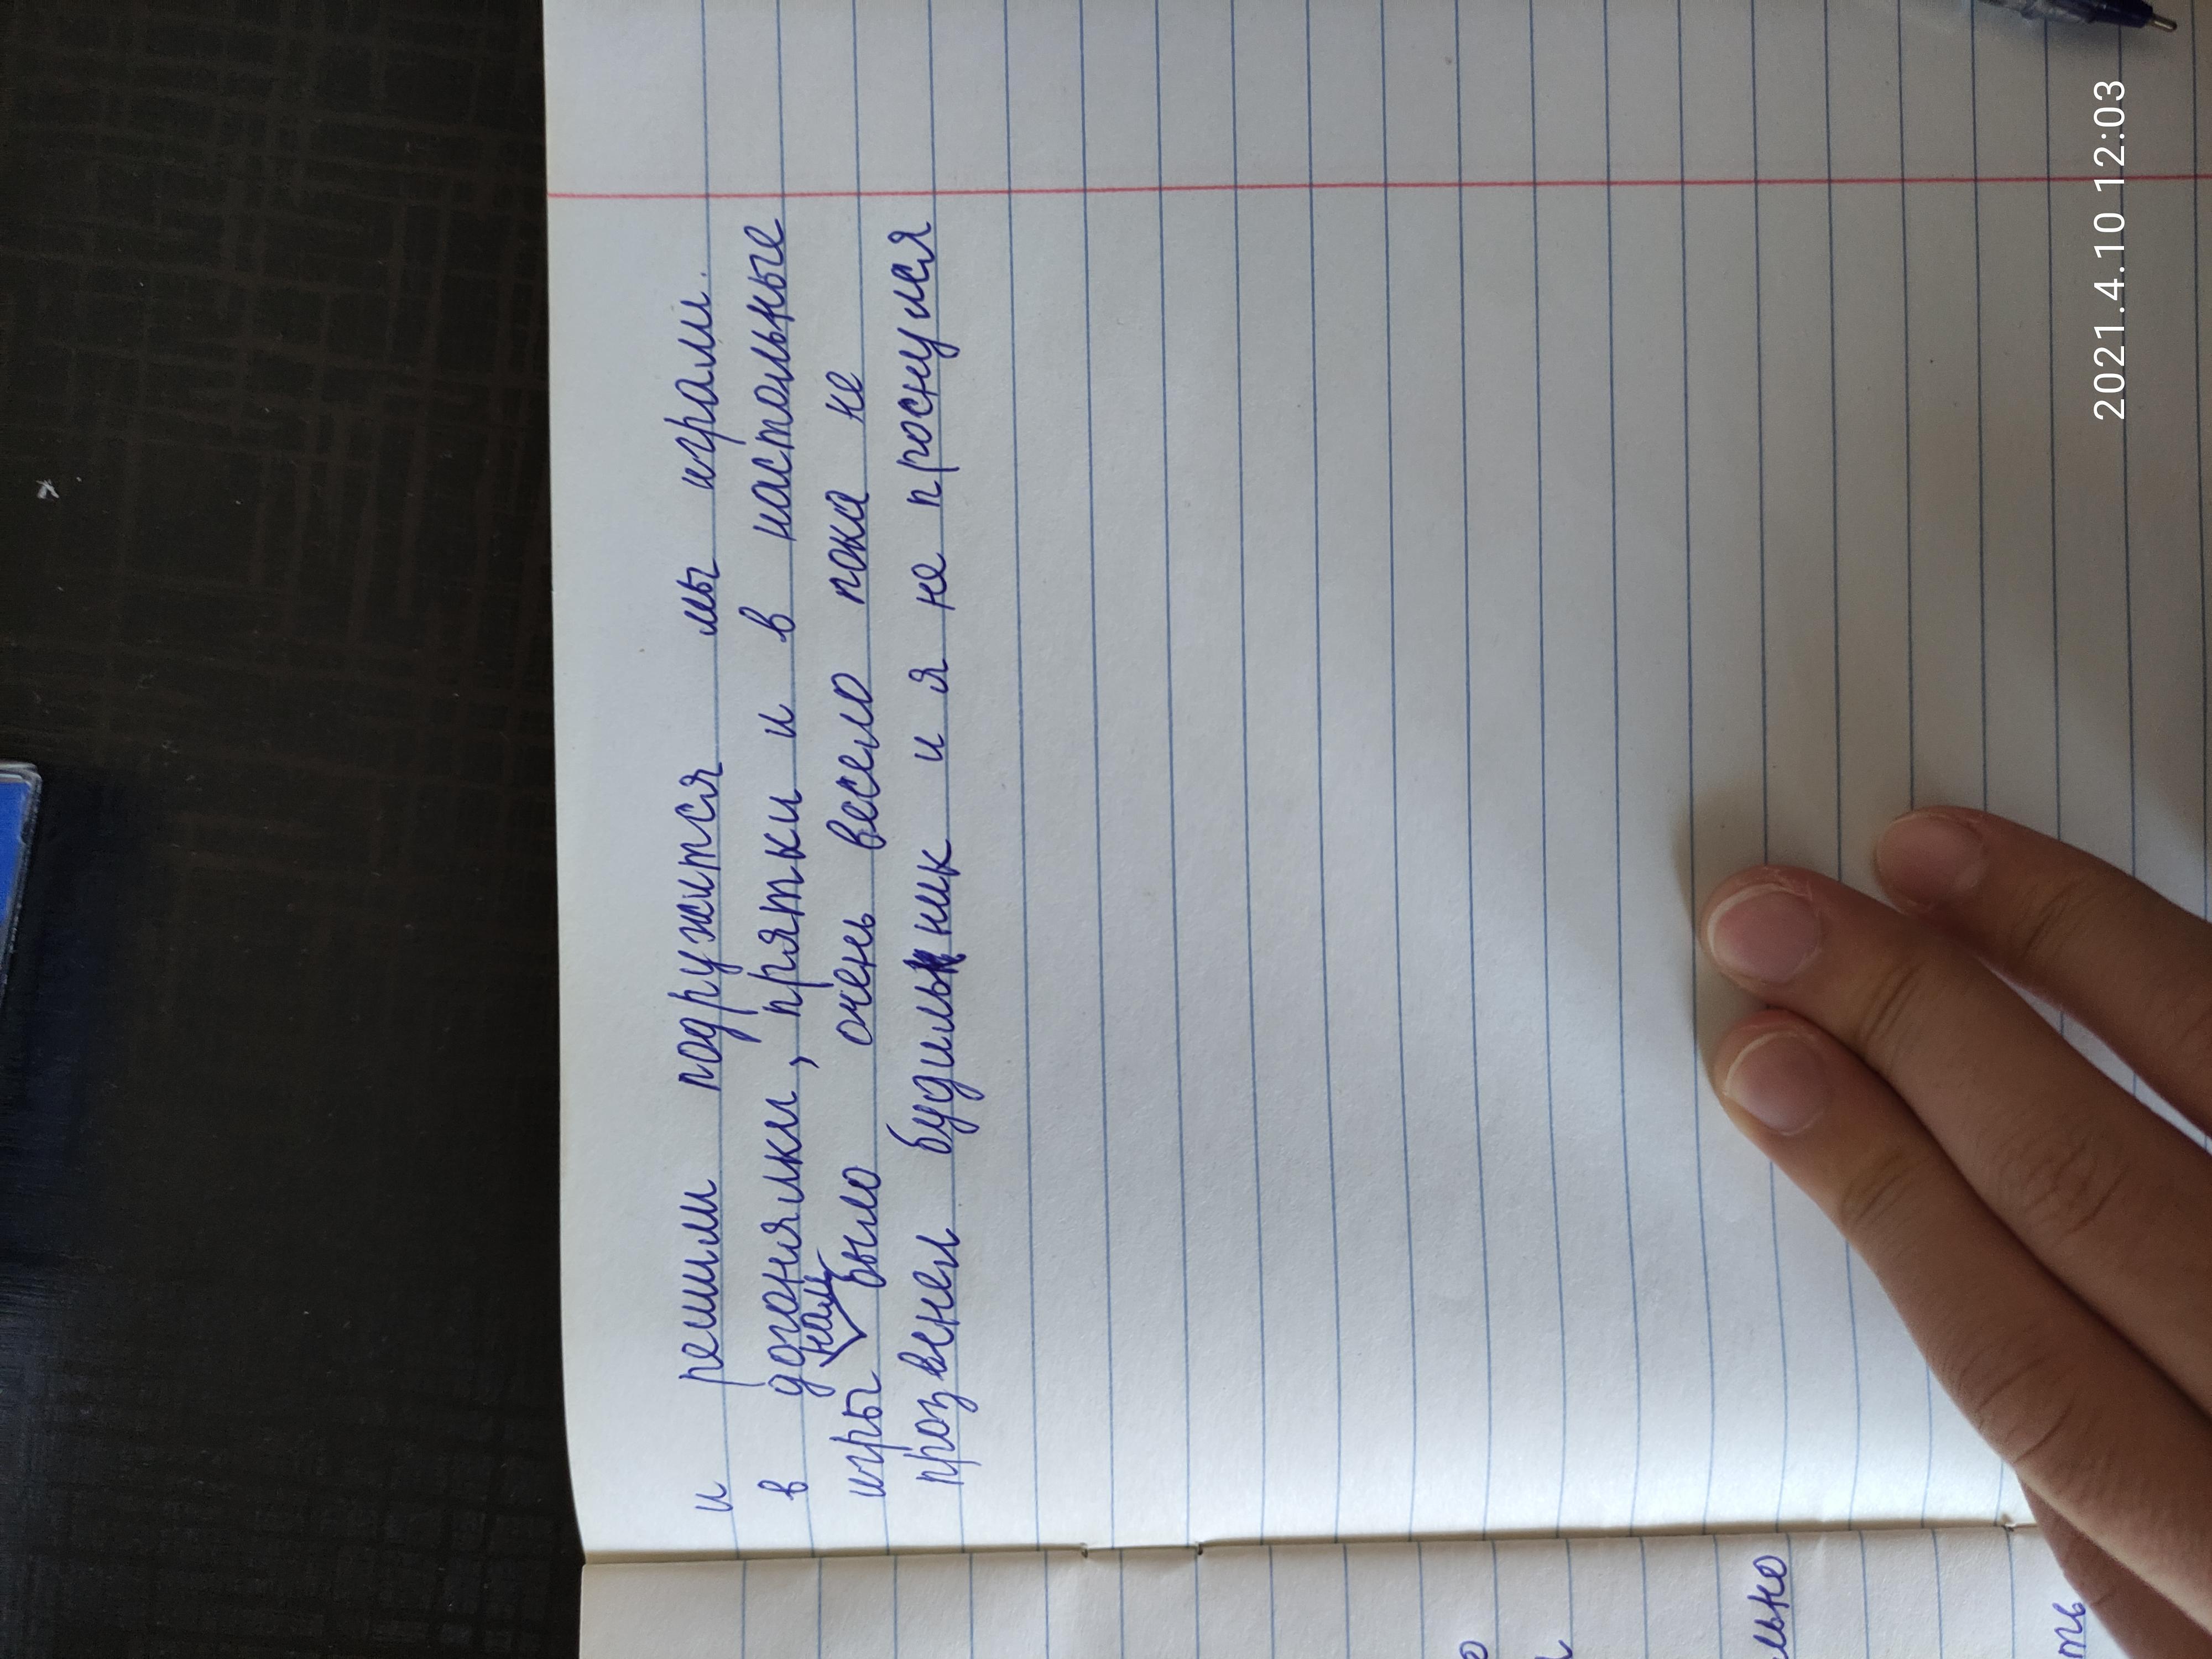 и решили подружится мы играли.
в догонялки, прятки и в настольные
игры нам было очень весело пока не
прозвенел будильник и я не проснулся
льно
ть
2021.4.10 12:03